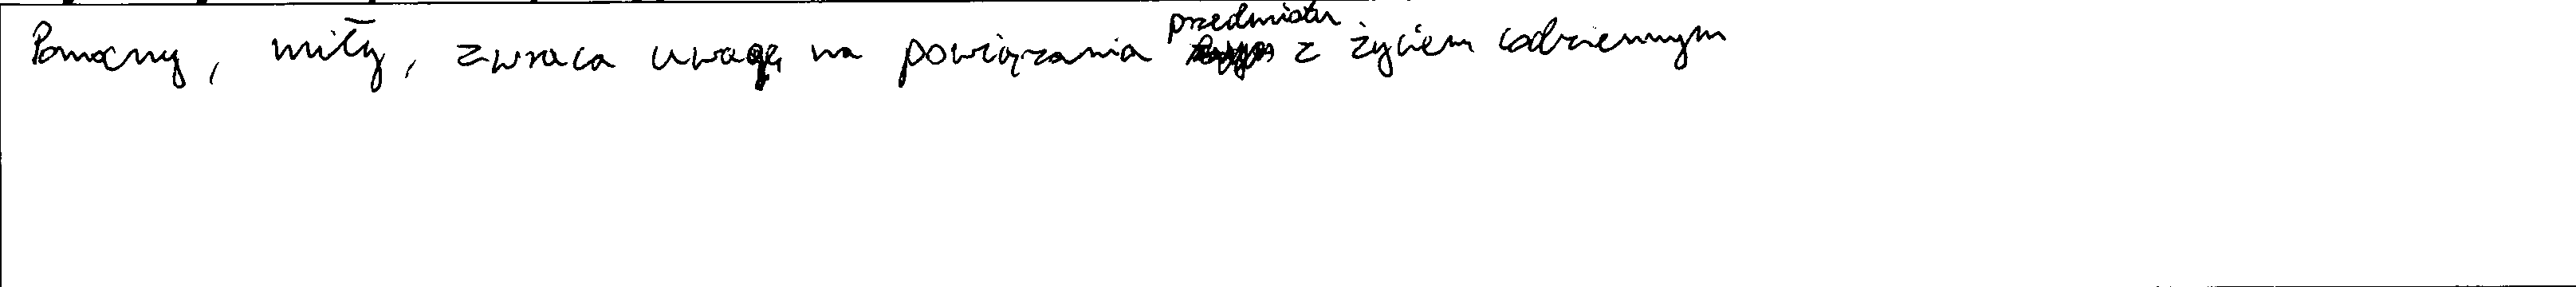 Pomocny, miły, zwraca uwagę na powiązania przedmiotu z życiem codziennym